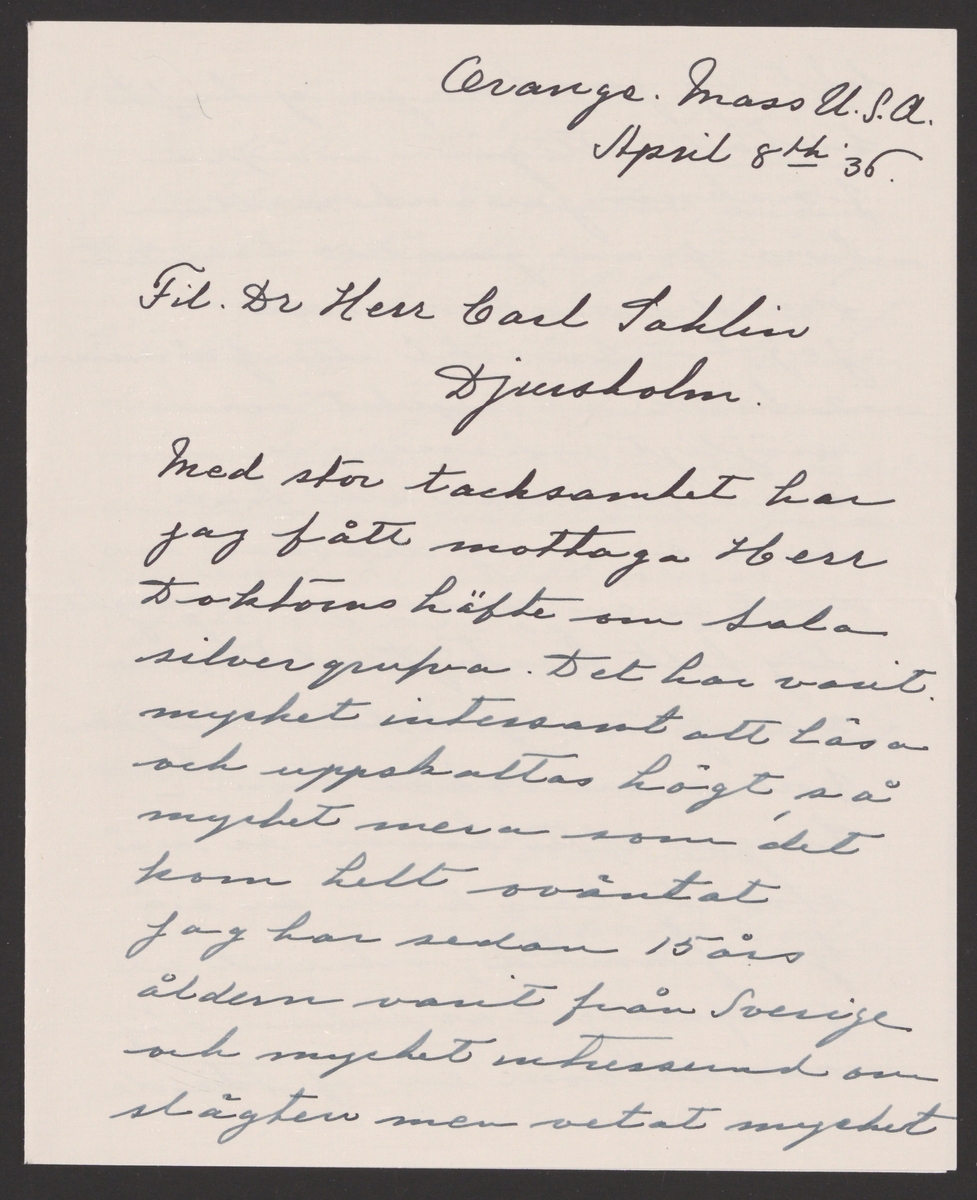 Orange. Mass U.S.A.
April 8th 36.
Fil. Dr Herr Carl Sahlin
Djursholm.
Med stor tacksamhet har
jag fått mottaga Herr
Doktorns häfte om Sala
silvergrufva. Det har varit.
mycket intressant att läsa
och uppskattas högt, så
mycket mera som det
kom helt oväntat
jag har sedan 15 års
åldern varit från Sverige
och mycket intresserad om
slägten men vetat mycket